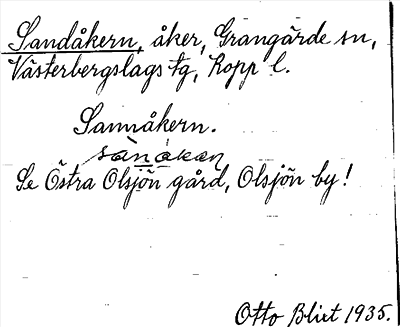 Sandåkern, åker, Grangärde sn,
Västerbergslags tg, Kopp l.
Sannåkern.
sànákan
Se Östra Olsjön gård, Olsjön by!
Otto Blixt 1935.